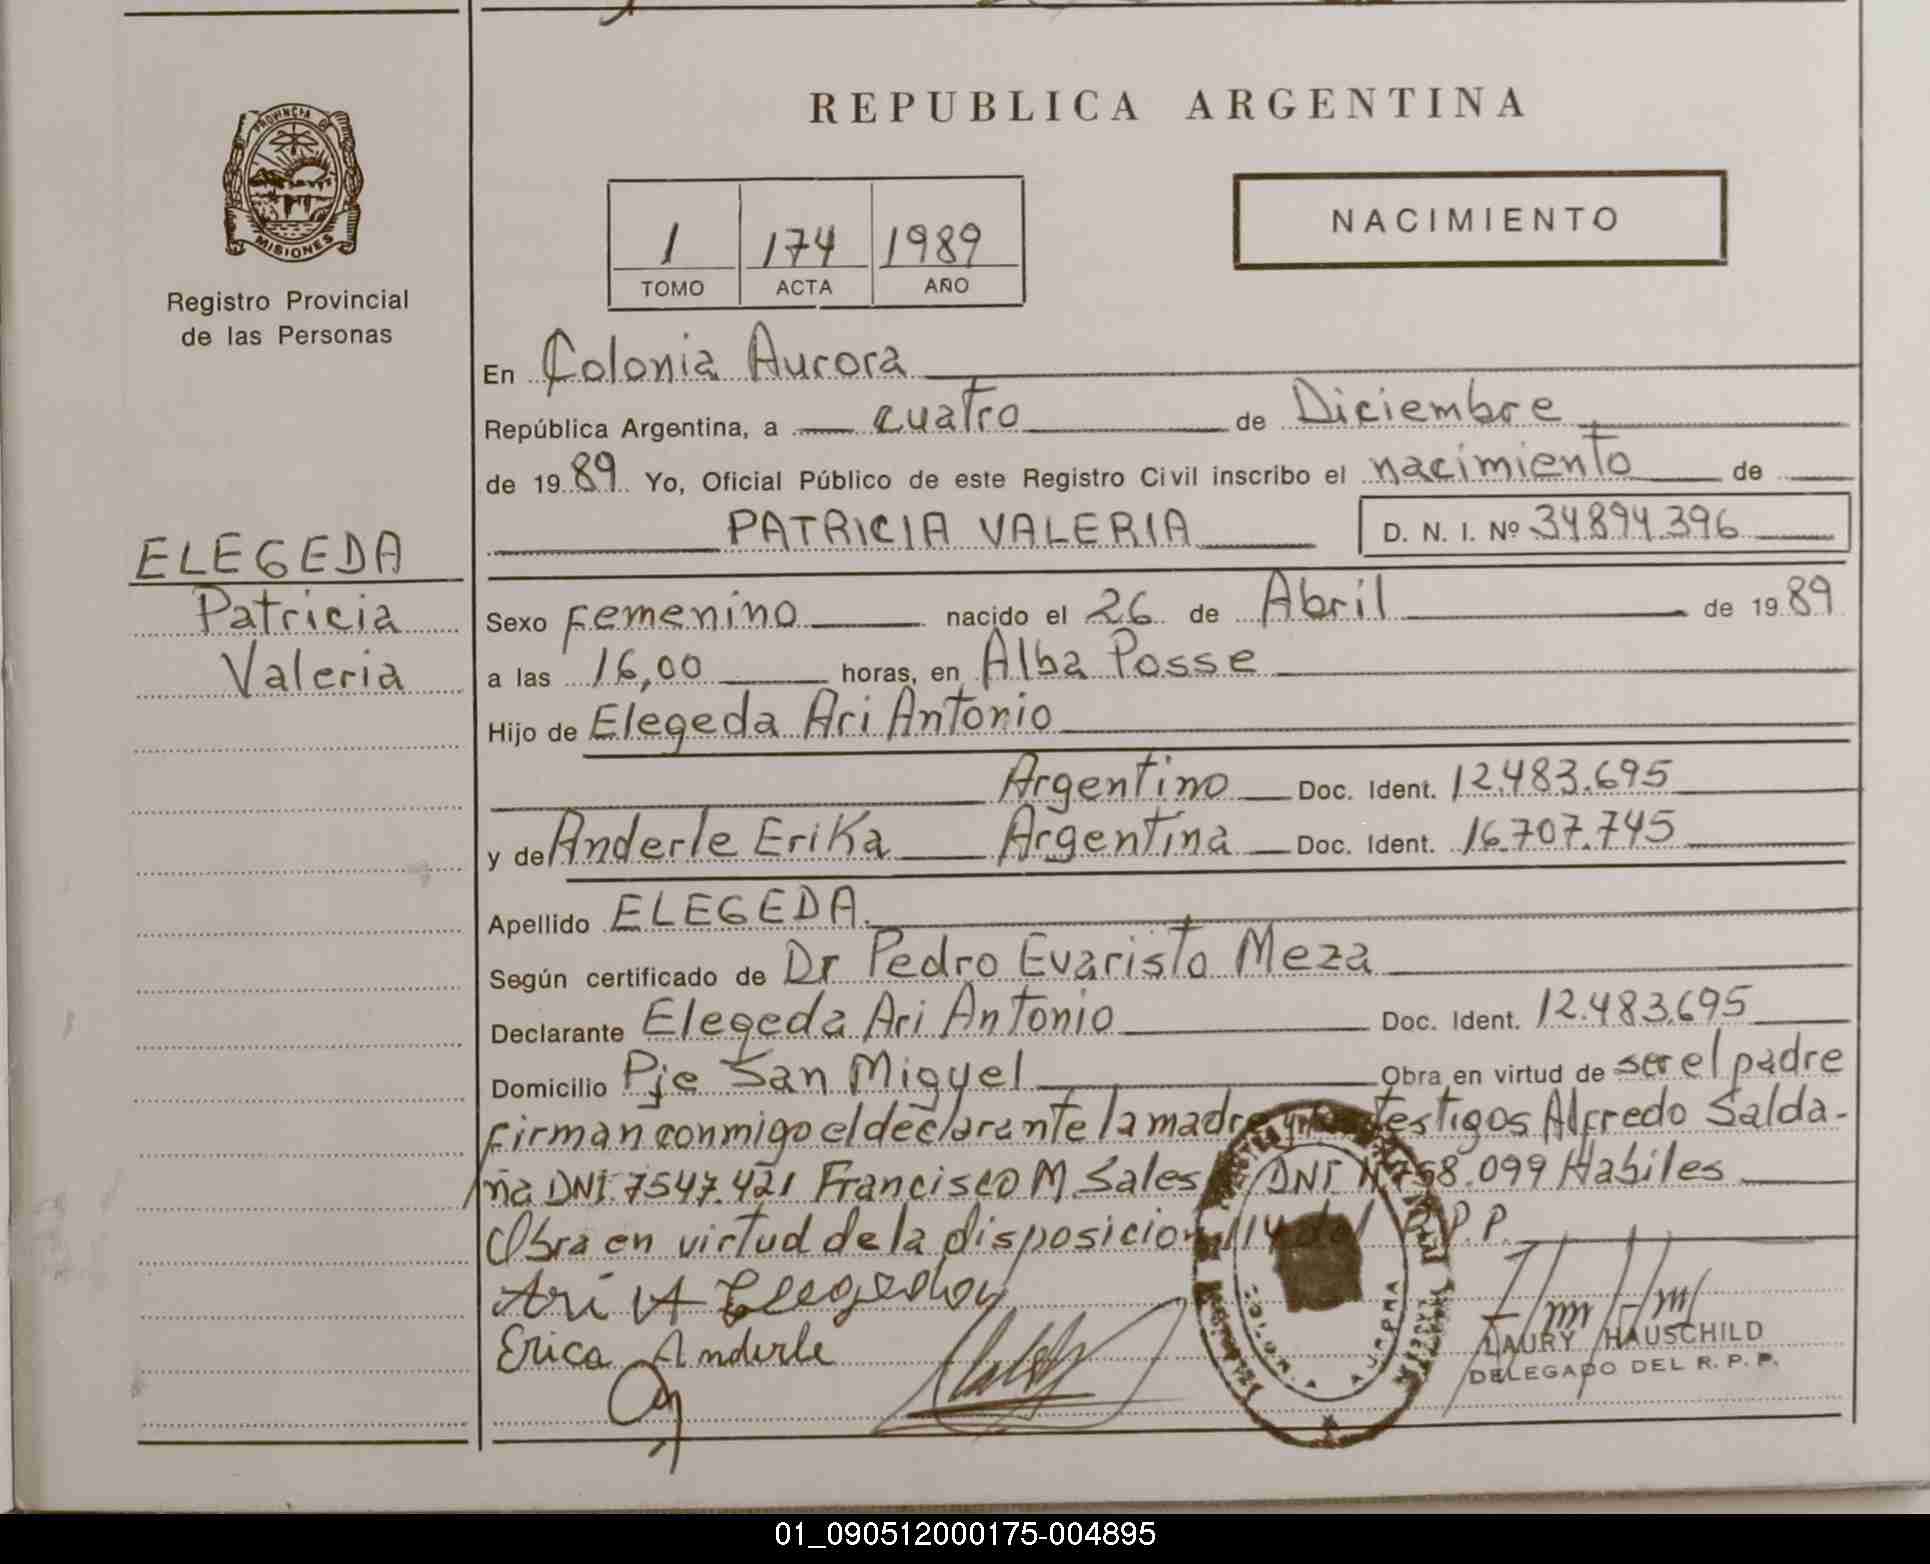 REPUBLICA ARGENTINA
PROVINCIA D
MISIONES
Registro Provincial
de las Personas
1 174 1989
TOMO ACTA AÑO
NACIMIENTO
En Colonia Aurora
República Argentina, a cuatro de Diciembre
de 1989 Yo, Oficial Público de este Registro Civil inscribo el nacimiento de
PATRICIA VALERIA D. N. I. Nº 34894.396
ELEGEDA
Patricia
Valeria
Sexo Femenino nacido el 26 de Abril de 1989
a las 16,00 horas, en Alba Posse
Hijo de Elegeda Ari Antonio
Argentino Doc. Ident. 12.483.695
y de Anderle Erika Argentina Doc. Ident. 16.707.745
Apellido ELEGEDA.
Según certificado de Dr Pedro Evaristo Meza
Declarante Elegeda Ari Antonio Doc. Ident. 12.483.695
Domicilio Pje San Miguel Obra en virtud de ser el padre
Firman conmigo el declarante la madre testigos Alfredo Salda-
ña DNI 7547.421 Francisco M Sales DNI 758.099 Habiles
Obra en virtud de la disposicion 114 del R.P.P.
Ari A Elegeda
Erica Anderle
COLONIA AURORA
LAURY HAUSCHILD
DELEGADO DEL R. P. P.
01_090512000175-004895